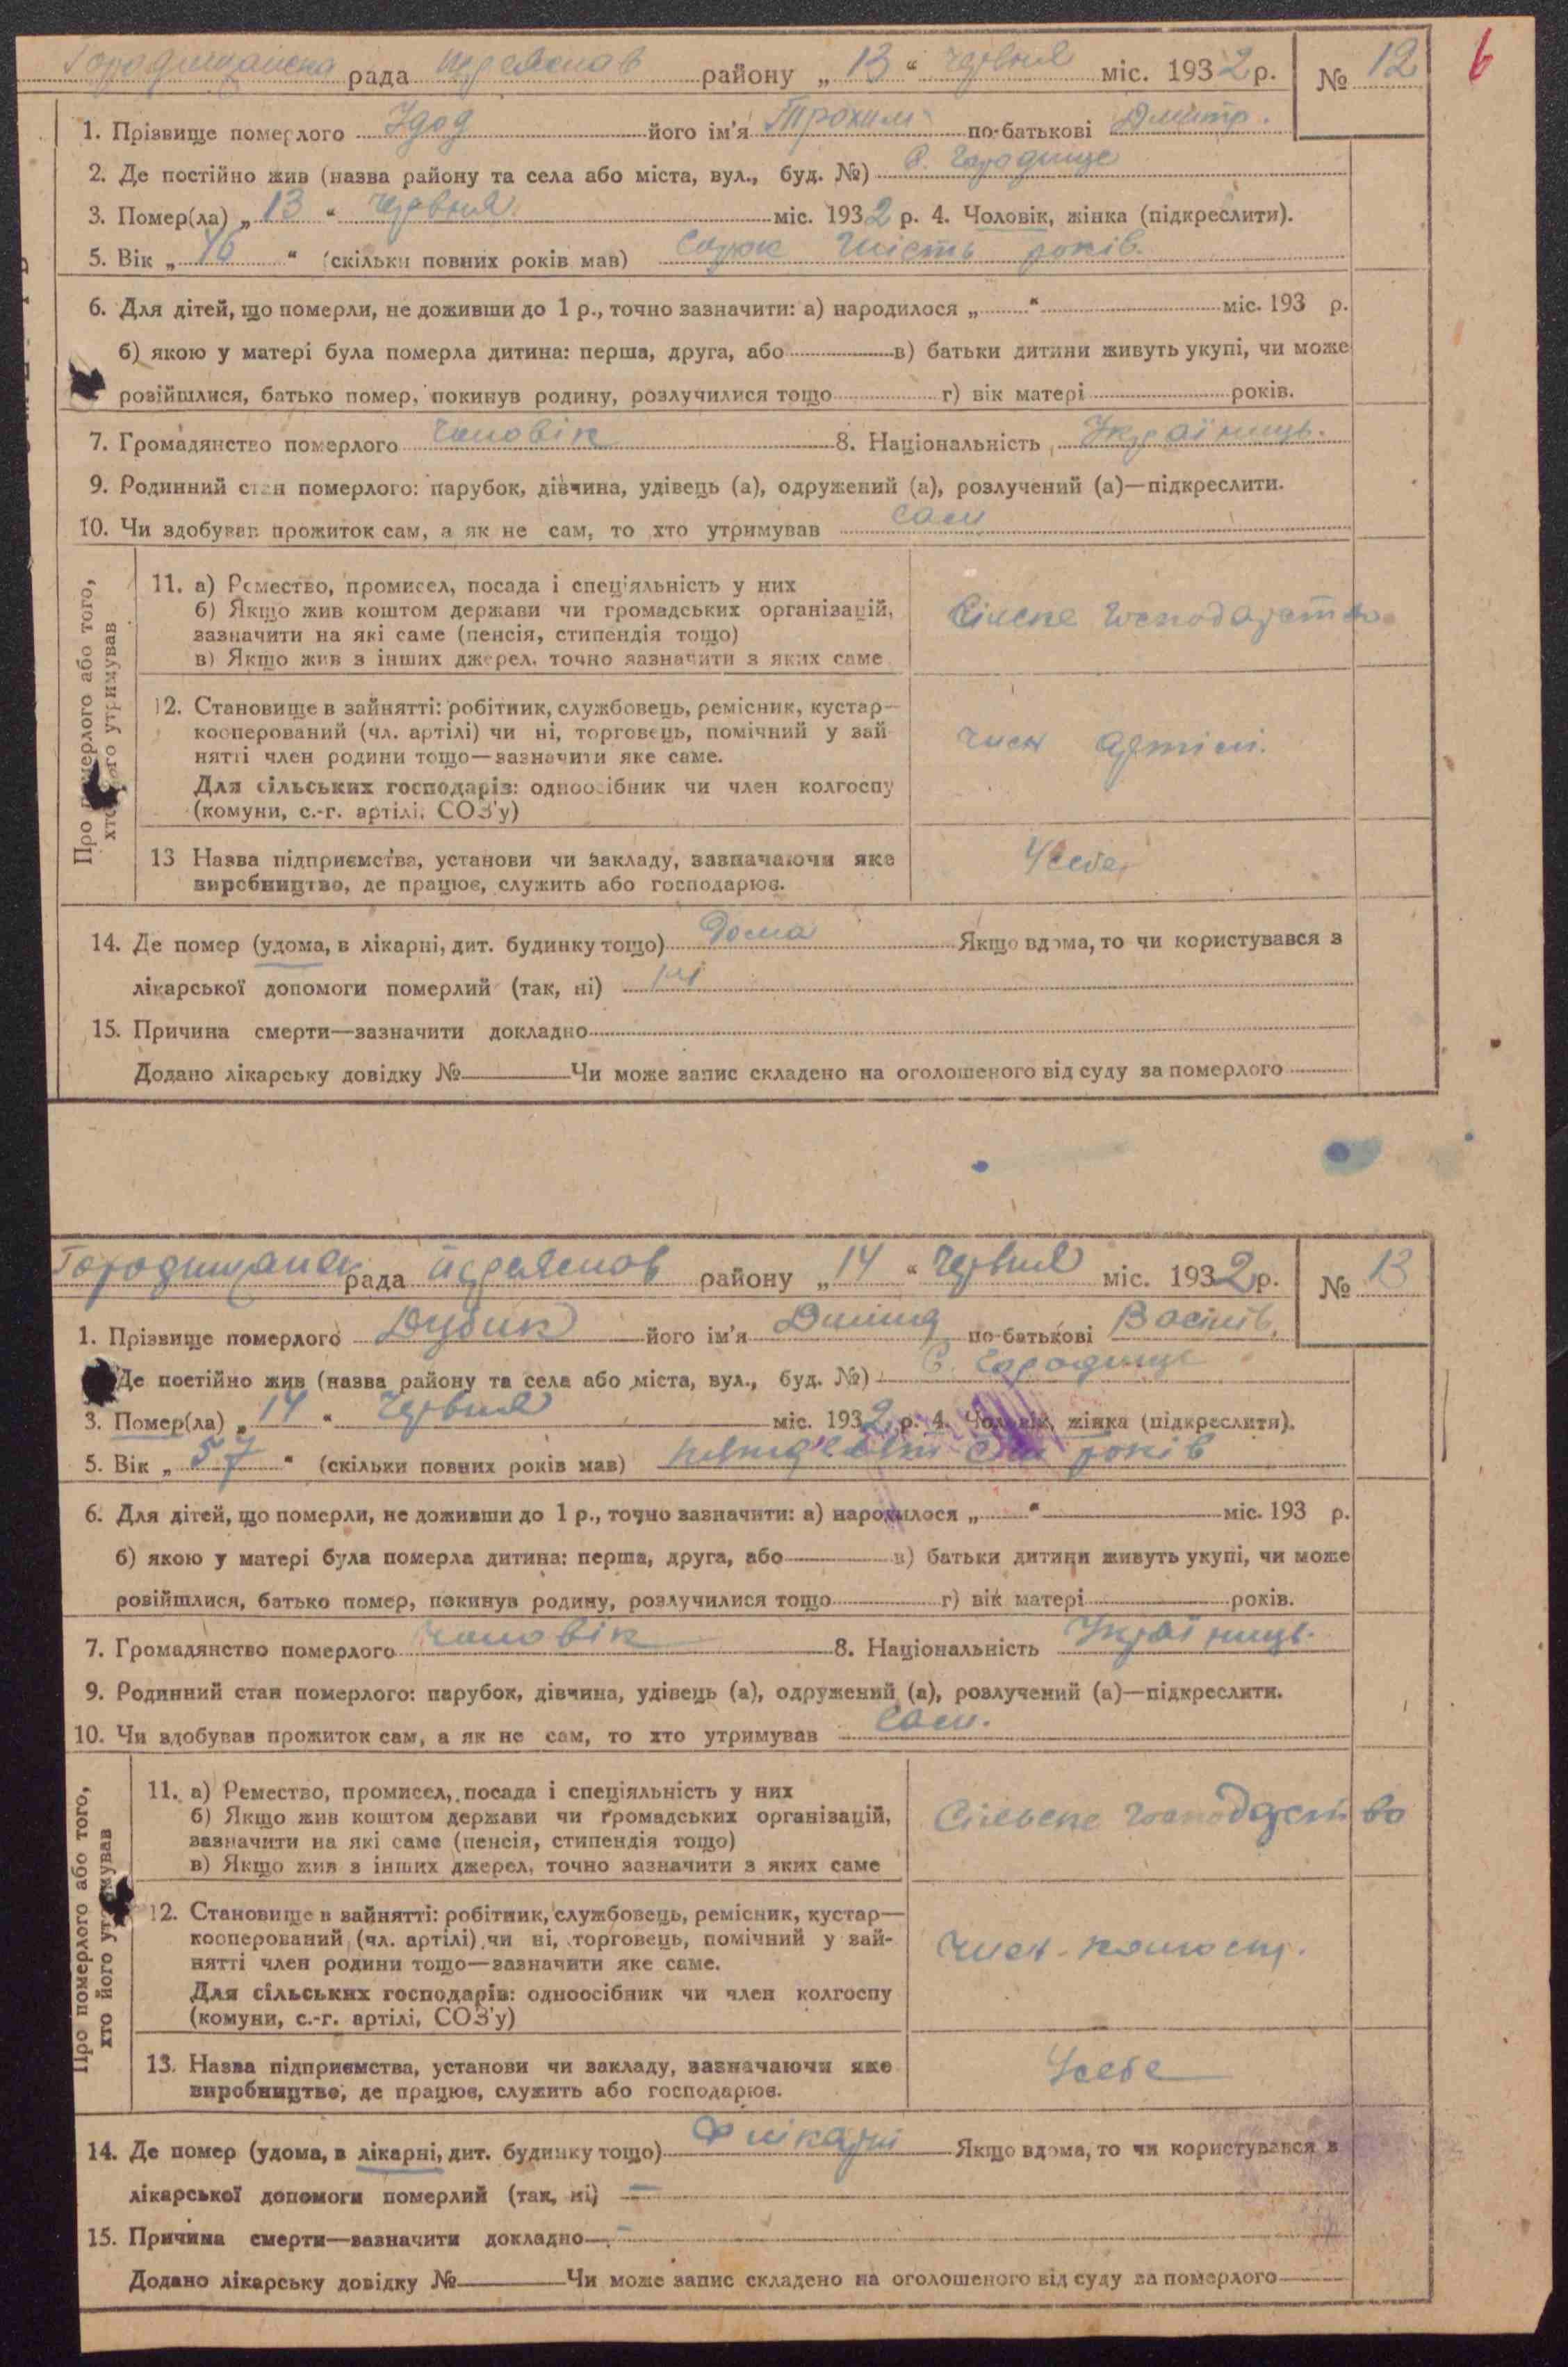 Городищанська рада Переяслов району „13“ червня міс. 1932 р. № 12 6
1. Прізвище померлого Удод його ім'я Трохим по-батькові Дмитр.
2. Де постійно жив (назва району та села або міста, вул., буд. №) С. Городище
3. Помер(ла) „13“ червня міс. 1932 р. 4. Чоловік, жінка (підкреслити).
5. Вік „46“ (скільки повних років мав) сорок шість років.
6. Для дітей, що померли, не доживши до 1 р., точно зазначити: а) народилося „ “ міс. 193 р.
б) якою у матері була померла дитина: перша, друга, або в) батьки дитини живуть укупі, чи може
розійшлися, батько помер, покинув родину, розлучилися тощо г) вік матері років.
7. Громадянство померлого чоловік 8. Національність Українець.
9. Родинний стан померлого: парубок, дівчина, удівець (а), одружений (а), розлучений (а)—підкреслити.
10. Чи здобував прожиток сам, а як не сам, то хто утримував сам
Про померлого або того,
хто його утримував
11. а) Ремество, промисел, посада і спеціяльність у них
б) Якщо жив коштом держави чи громадських організацій,
зазначити на які саме (пенсія, стипендія тощо)
в) Якщо жив з інших джерел, точно зазначити з яких саме
Сільске господарство
12. Становище в зайнятті: робітник, службовець, ремісник, кустар—
кооперований (чл. артілі) чи ні, торговець, помічний у зай
нятті член родини тощо—зазначити яке саме.
Для сільських господарів: одноосібник чи член колгоспу
(комуни, с.-г. артілі, СОЗ'у)
член артілі.
13 Назва підприємства, установи чи закладу, зазначаючи яке
виробництво, де працює, служить або господарює.
Усебе
14. Де помер (удома, в лікарні, дит. будинку тощо) Дома Якщо вдома, то чи користувався з
лікарської допомоги померлий (так, ні) ні
15. Причина смерти—зазначити докладно
Додано лікарську довідку № Чи може запис складено на оголошеного від суду за померлого
Городищанск рада Переяслов району „14“ червня міс. 1932 р. № 13
1. Прізвище померлого Дубик його ім'я по-батькові Василів.
Де постійно жив (назва району та села або міста, вул., буд. №) С. Городище
3. Помер(ла) „14“ червня міс. 1932 р. 4. Чоловік, жінка (підкреслити).
5. Вік „57“ (скільки повних років мав) пятдесят сім років
6. Для дітей, що померли, не доживши до 1 р., точно зазначити: а) народилося „ “ міс. 193 р.
б) якою у матері була померла дитина: перша, друга, або в) батьки дитини живуть укупі, чи може
розійшлися, батько помер, покинув родину, розлучилися тощо г) вік матері років.
7. Громадянство померлого чоловік 8. Національність Українець.
9. Родинний стан померлого: парубок, дівчина, удівець (а), одружений (а), розлучений (а)—підкреслити.
10. Чи здобував прожиток сам, а як не сам, то хто утримував сам.
Про померлого або того,
хто його утримував
11. а) Ремество, промисел, посада і спеціяльність у них
б) Якщо жив коштом держави чи громадських організацій,
зазначити на які саме (пенсія, стипендія тощо)
в) Якщо жив з інших джерел, точно зазначити з яких саме
Сільське господарство
12. Становище в зайнятті: робітник, службовець, ремісник, кустар—
кооперований (чл. артілі) чи ні, торговець, помічний у зай-
нятті член родини тощо—зазначити яке саме.
Для сільських господарів: одноосібник чи член колгоспу
(комуни, с.-г. артілі, СОЗ'у)
член колгоспу.
13. Назва підприємства, установи чи закладу, зазначаючи яке
виробництво, де працює, служить або господарює.
Усебе
14. Де помер (удома, в лікарні, дит. будинку тощо) В лікарні Якщо вдома, то чи користувався з
лікарської допомоги померлий (так, ні) —
15. Причина смерти—зазначити докладно —
Додано лікарську довідку № Чи може запис складено на оголошеного від суду за померлого